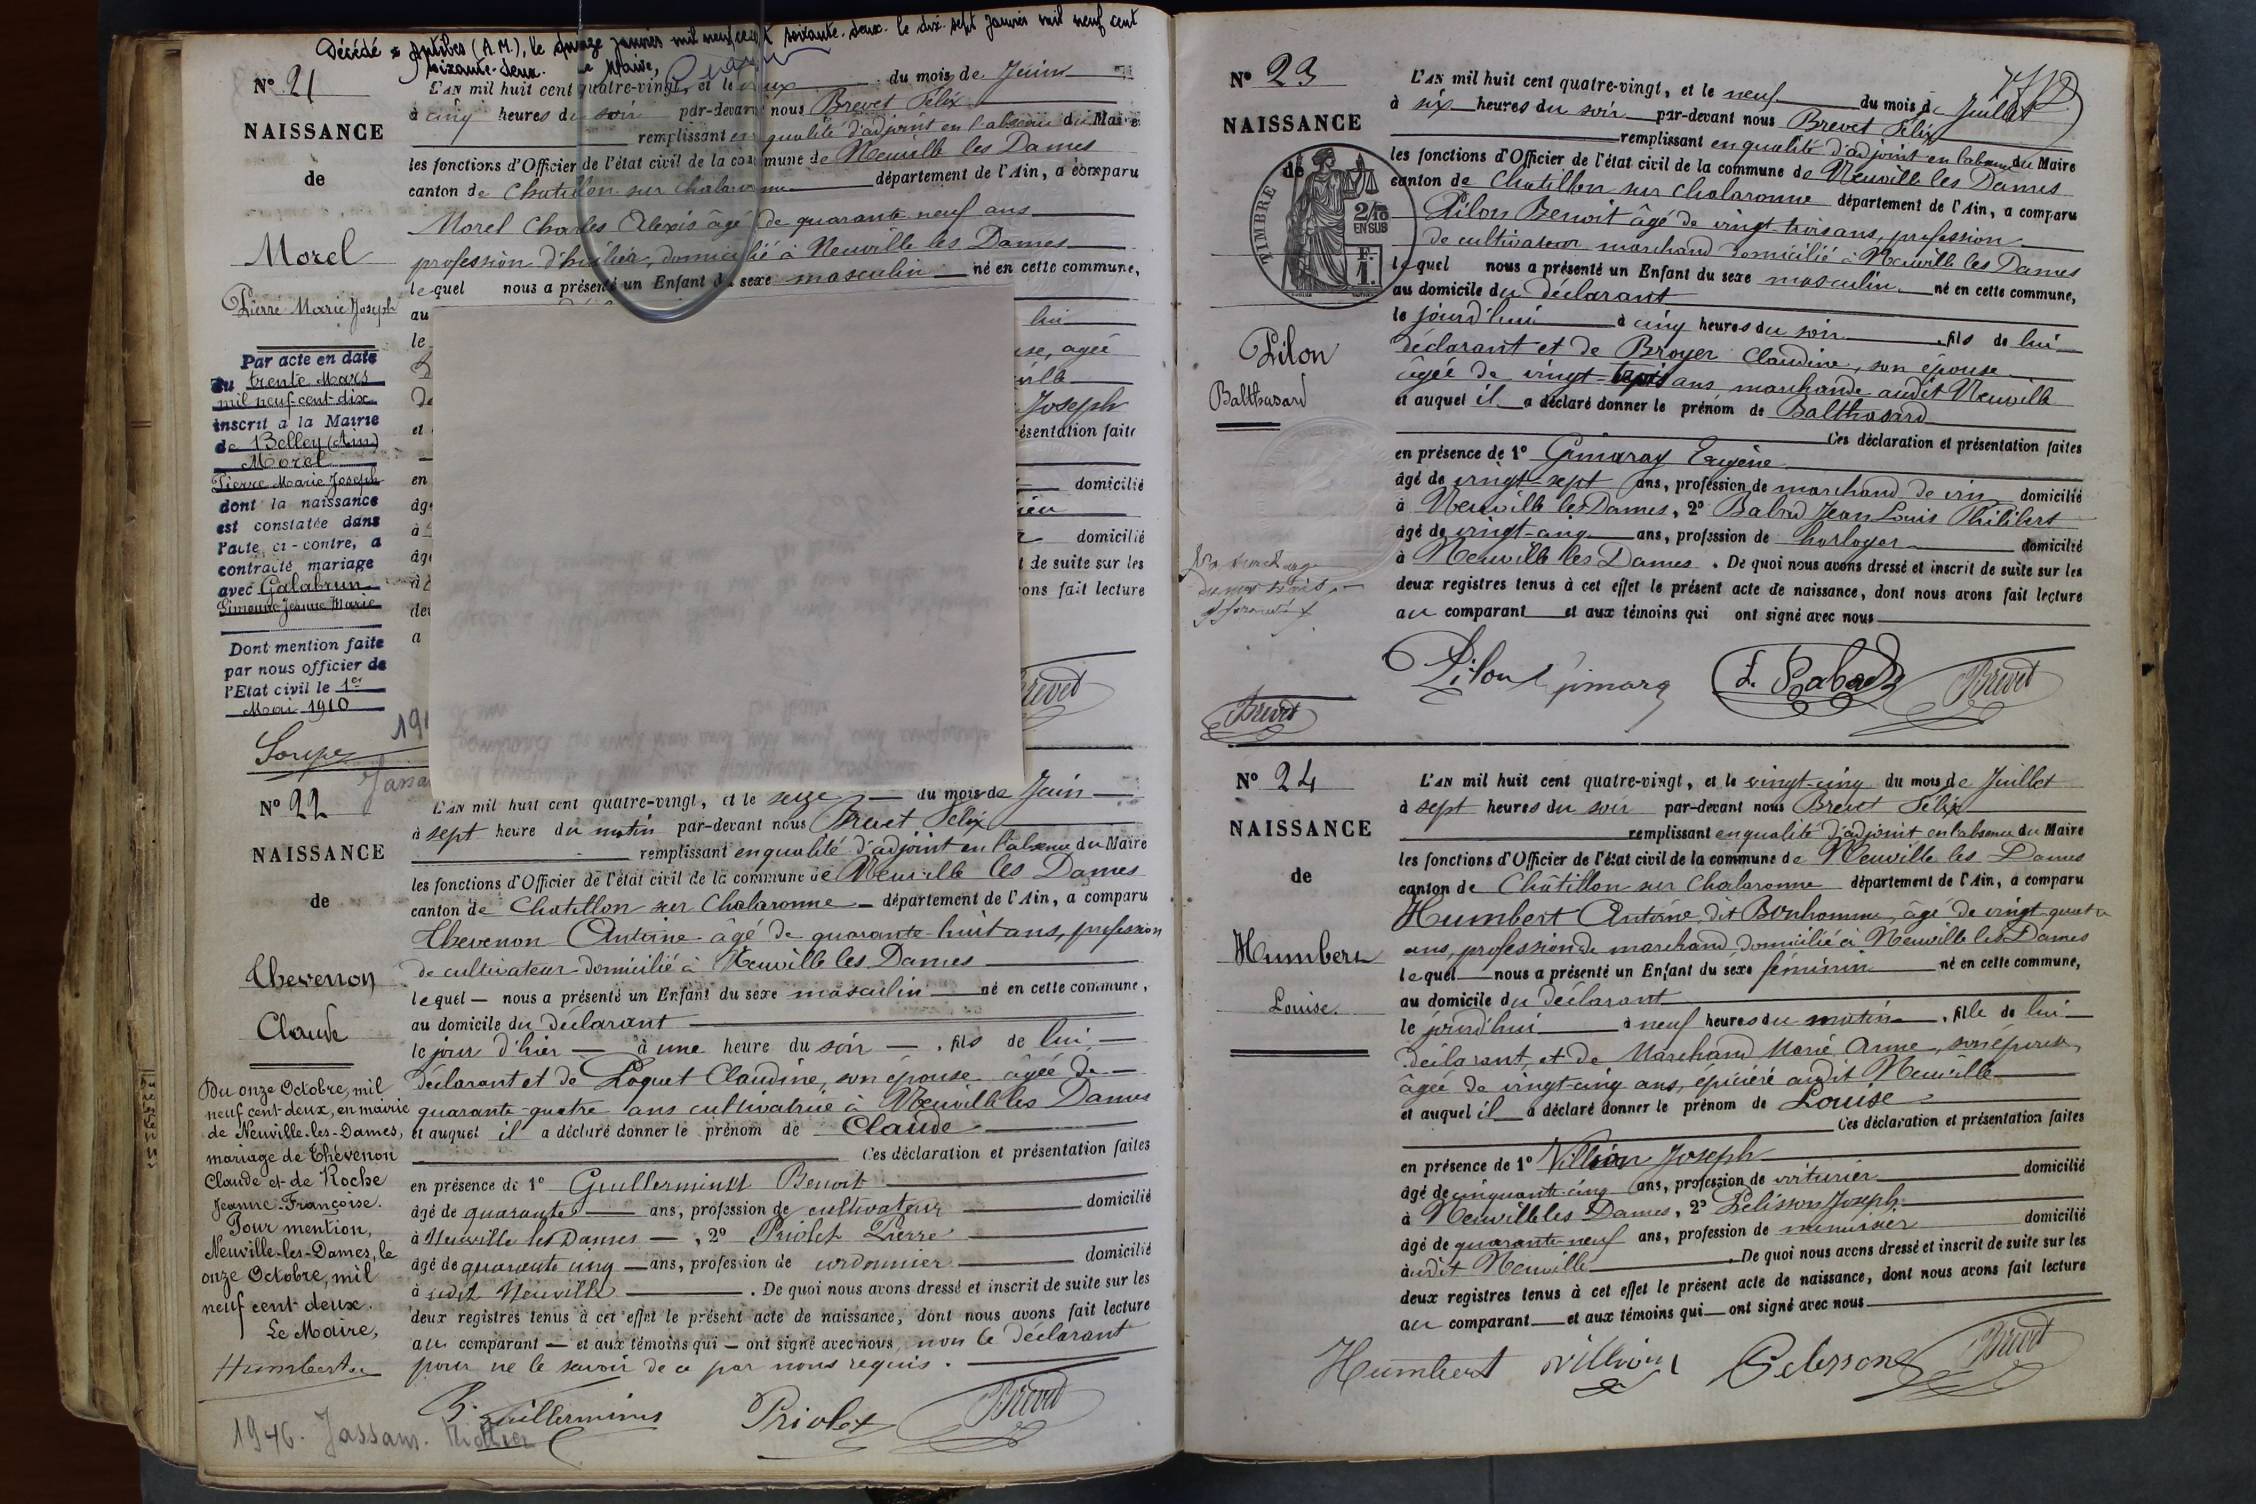 Décédé à Antibes (A.M.), le quinze janvier mil neuf cent soixante-deux. le dix-sept Janvier mil neuf cent
soixante-deux. Le Maire,
N° 21
NAISSANCE
de
Morel
Pierre Marie Joseph
Par acte en date
du trente Mars
mil neuf cent dix
inscrit à la Mairie
de Belley (Ain)
Morel
Pierre Marie Joseph
dont la naissance
est constatée dans
l'acte ci-contre, a
contracté mariage
avec Galabrun
Simonne Jeanne Marie
Dont mention faite
par nous officier de
l'Etat civil le 1er
Mai 1910
L'AN mil huit cent quatre-vingt, et le deux du mois de Juin
à cinq heures du soir par-devant nous Brevet Félix
remplissant en qualité d'adjoint en l'absence du Maire
les fonctions d'Officier de l'état civil de la commune de Neuville les Dames
canton de Chatillon sur Chalaronne département de l'Ain, a comparu
Morel Charles Alexis âgé de quarante neuf ans
profession d'huilier, domicilié à Neuville les Dames
lequel nous a présenté un Enfant du sexe masculin né en cette commune,
au
le lui
se, agée
ville
Joseph
et ésentation faite
en domicilié
âgé
à domicilié
âgé
à t de suite sur les
deu ons fait lecture
a
Brevet
N° 22
NAISSANCE
de
Thevenon
Claude
Du onze Octobre, mil
neuf cent deux, en mairie
de Neuville-les-Dames,
mariage de Thévenon
Claude et de Roche
Jeanne-Françoise.
Pour mention,
Neuville-les-Dames, le
onze Octobre, mil
neuf cent deux.
Le Maire,
Humbert
1946. Jassans. Riottier
L'AN mil huit cent quatre-vingt, et le seize du mois de Juin
à sept heure du matin par-devant nous Brevet Félix
remplissant en qualité d'adjoint en l'absence du Maire
les fonctions d'Officier de l'état civil de la commune de Neuville les Dames
canton de Chatillon sur Chalaronne département de l'Ain, a comparu
Thevenon Antoine âgé de quarante-huit ans, profession
de cultivateur domicilié à Neuville les Dames
lequel nous a présenté un Enfant du sexe masculin né en cette commune,
au domicile du déclarant
le jour d'hier à une heure du soir, fils de lui
déclarant et de Loquet Claudine, son épouse âgée de
quarante-quatre ans cultivatrice à Neuville les Dames
et auquel il a déclaré donner le prénom de Claude
Ces déclaration et présentation faites
en présence de 1° Guillerminet Benoit
âgé de quarante ans, profession de cultivateur domicilié
à Neuville les Dames, 2° Priolet Pierre
âgé de quarante cinq ans, profession de cordonnier domicilié
à udit Neuville. De quoi nous avons dressé et inscrit de suite sur les
deux registres tenus à cet effet le présent acte de naissance, dont nous avons fait lecture
au comparant et aux témoins qui ont signé avec nous, non le déclarant
pour ne le savoir de ce par nous requis.
Priolet Brevet
N° 23
NAISSANCE
de
TIMBRE
2/10
EN SUS
F.
1.
Pilon
Balthasard
Brevet
L'AN mil huit cent quatre-vingt, et le neuf du mois de Juillet
à six heures du soir par-devant nous Brevet Félix
remplissant en qualité d'adjoint en l'absence du Maire
les fonctions d'Officier de l'état civil de la commune de Neuville les Dames
canton de Chatillon sur Chalaronne département de l'Ain, a comparu
Pilon Benoit âgé de vingt trois ans, profession
de cultivateur marchand domicilié à Neuville les Dames
lequel nous a présenté un Enfant du sexe masculin né en cette commune,
au domicile du déclarant
le jourd'hui à cinq heures du soir, fils de lui
déclarant et de Broyer Claudine, son épouse
âgée de vingt- ans marchande audit Neuville
et auquel il a déclaré donner le prénom de Balthasard
Ces déclaration et présentation faites
en présence de 1° Gimaray Eugène
âgé de vingt-sept ans, profession de marchand de vin domicilié
à Neuville les Dames, 2° Babad Jean Louis Philibert
âgé de vingt-cinq ans, profession de horloger domicilié
à Neuville les Dames. De quoi nous avons dressé et inscrit de suite sur les
deux registres tenus à cet effet le présent acte de naissance, dont nous avons fait lecture
au comparant et aux témoins qui ont signé avec nous
Pilon Gimaray L. Babad Brevet
N° 24
NAISSANCE
de
Humbert
Louise
L'AN mil huit cent quatre-vingt, et le vingt-cinq du mois de Juillet
à sept heures du soir par-devant nous Brevet Félix
remplissant en qualité d'adjoint en l'absence du Maire
les fonctions d'Officier de l'état civil de la commune de Neuville les Dames
canton de Châtillon sur Chalaronne département de l'Ain, a comparu
Humbert Antoine dit Bonhomme, âgé de vingt quatre
ans, profession de marchand domicilié à Neuville les Dames
lequel nous a présenté un Enfant du sexe féminin né en cette commune,
au domicile du déclarant
le jourd'hui à neuf heures du matin, fille de lui
déclarant, et de Marchand Marie Anne, son épouse,
âgée de vingt-cinq ans, épicière audit Neuville
et auquel il a déclaré donner le prénom de Louise
Ces déclaration et présentation faites
en présence de 1° Villion Joseph
âgé de cinquante-cinq ans, profession de voiturier domicilié
à Neuville les Dames, 2° Pelisson Joseph
âgé de quarante-neuf ans, profession de menuisier domicilié
audit Neuville. De quoi nous avons dressé et inscrit de suite sur les
deux registres tenus à cet effet le présent acte de naissance, dont nous avons fait lecture
au comparant et aux témoins qui ont signé avec nous
Humbert Villion Pelisson Brevet